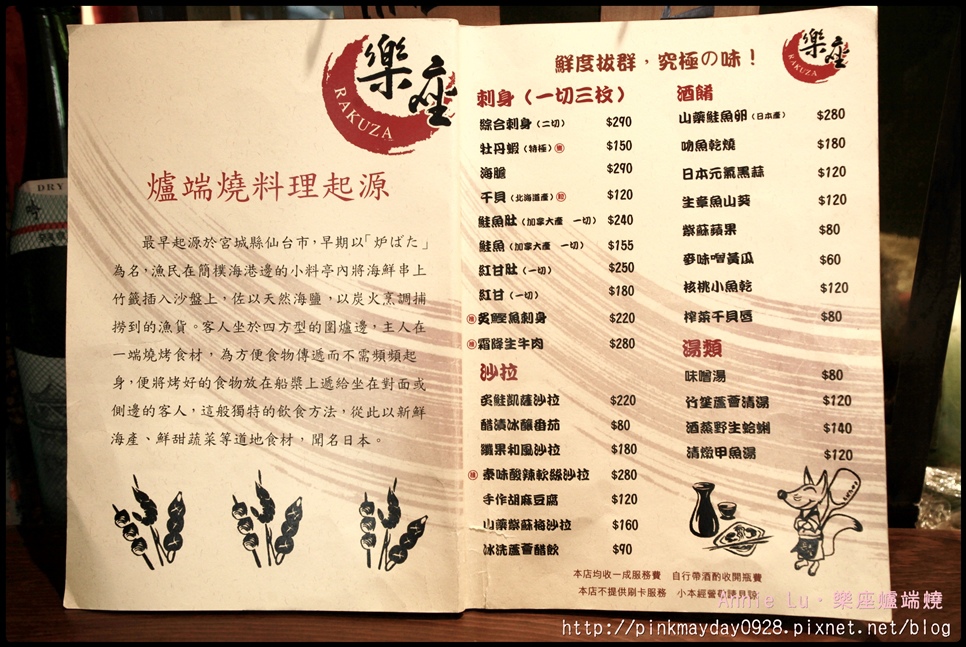 樂座
RAKUZA
DRY
爐端燒料理起源
最早起源於宮城縣仙台市，早期以「炉ばた」
為名，漁民在簡樸海港邊的小料亭內將海鮮串上
竹籤插入沙盤上，佐以天然海鹽，以炭火烹調捕
撈到的漁貨。客人坐於四方型的圍爐邊，主人在
一端燒烤食材，為方便食物傳遞而不需頻頻起
身，便將烤好的食物放在船槳上遞給坐在對面或
側邊的客人，這般獨特的飲食方法，從此以新鮮
海產、鮮甜蔬菜等道地食材，聞名日本。
鮮度拔群，究極の味！
樂座
RAKUZA
刺身（一切三枚）
綜合刺身（二切） $290
牡丹蝦（特極） $150
海膽 $290
干貝（北海道產） $120
鮭魚肚（加拿大產 一切） $240
鮭魚（加拿大產 一切） $155
紅甘肚（一切） $250
紅甘（一切） $180
炙鰹魚刺身 $220
霜降生牛肉 $280
沙拉
炙鮭凱薩沙拉 $220
醋漬冰釀番茄 $80
鑶果和風沙拉 $180
泰味酸辣軟絲沙拉 $280
手作胡麻豆腐 $120
山藥紫蘇梅沙拉 $160
冰洗蘆薈醋飲 $90
酒餚
山藥鮭魚卵（日本產） $280
吻魚乾燒 $180
日本元氣黑蒜 $120
生章魚山葵 $120
紫蘇蘋果 $80
麥味噌黃瓜 $60
核桃小魚乾 $120
榨菜干貝唇 $80
湯類
味噌湯 $80
竹笙蘆薈清湯 $120
酒蒸野生蛤蜊 $140
清燉甲魚湯 $120
本店均收一成服務費 自行帶酒酌收開瓶費
本店不提供刷卡服務 小本經營敬請見諒
Annie Lu．樂座爐端燒
http://pinkmayday0928.pixnet.net/blog